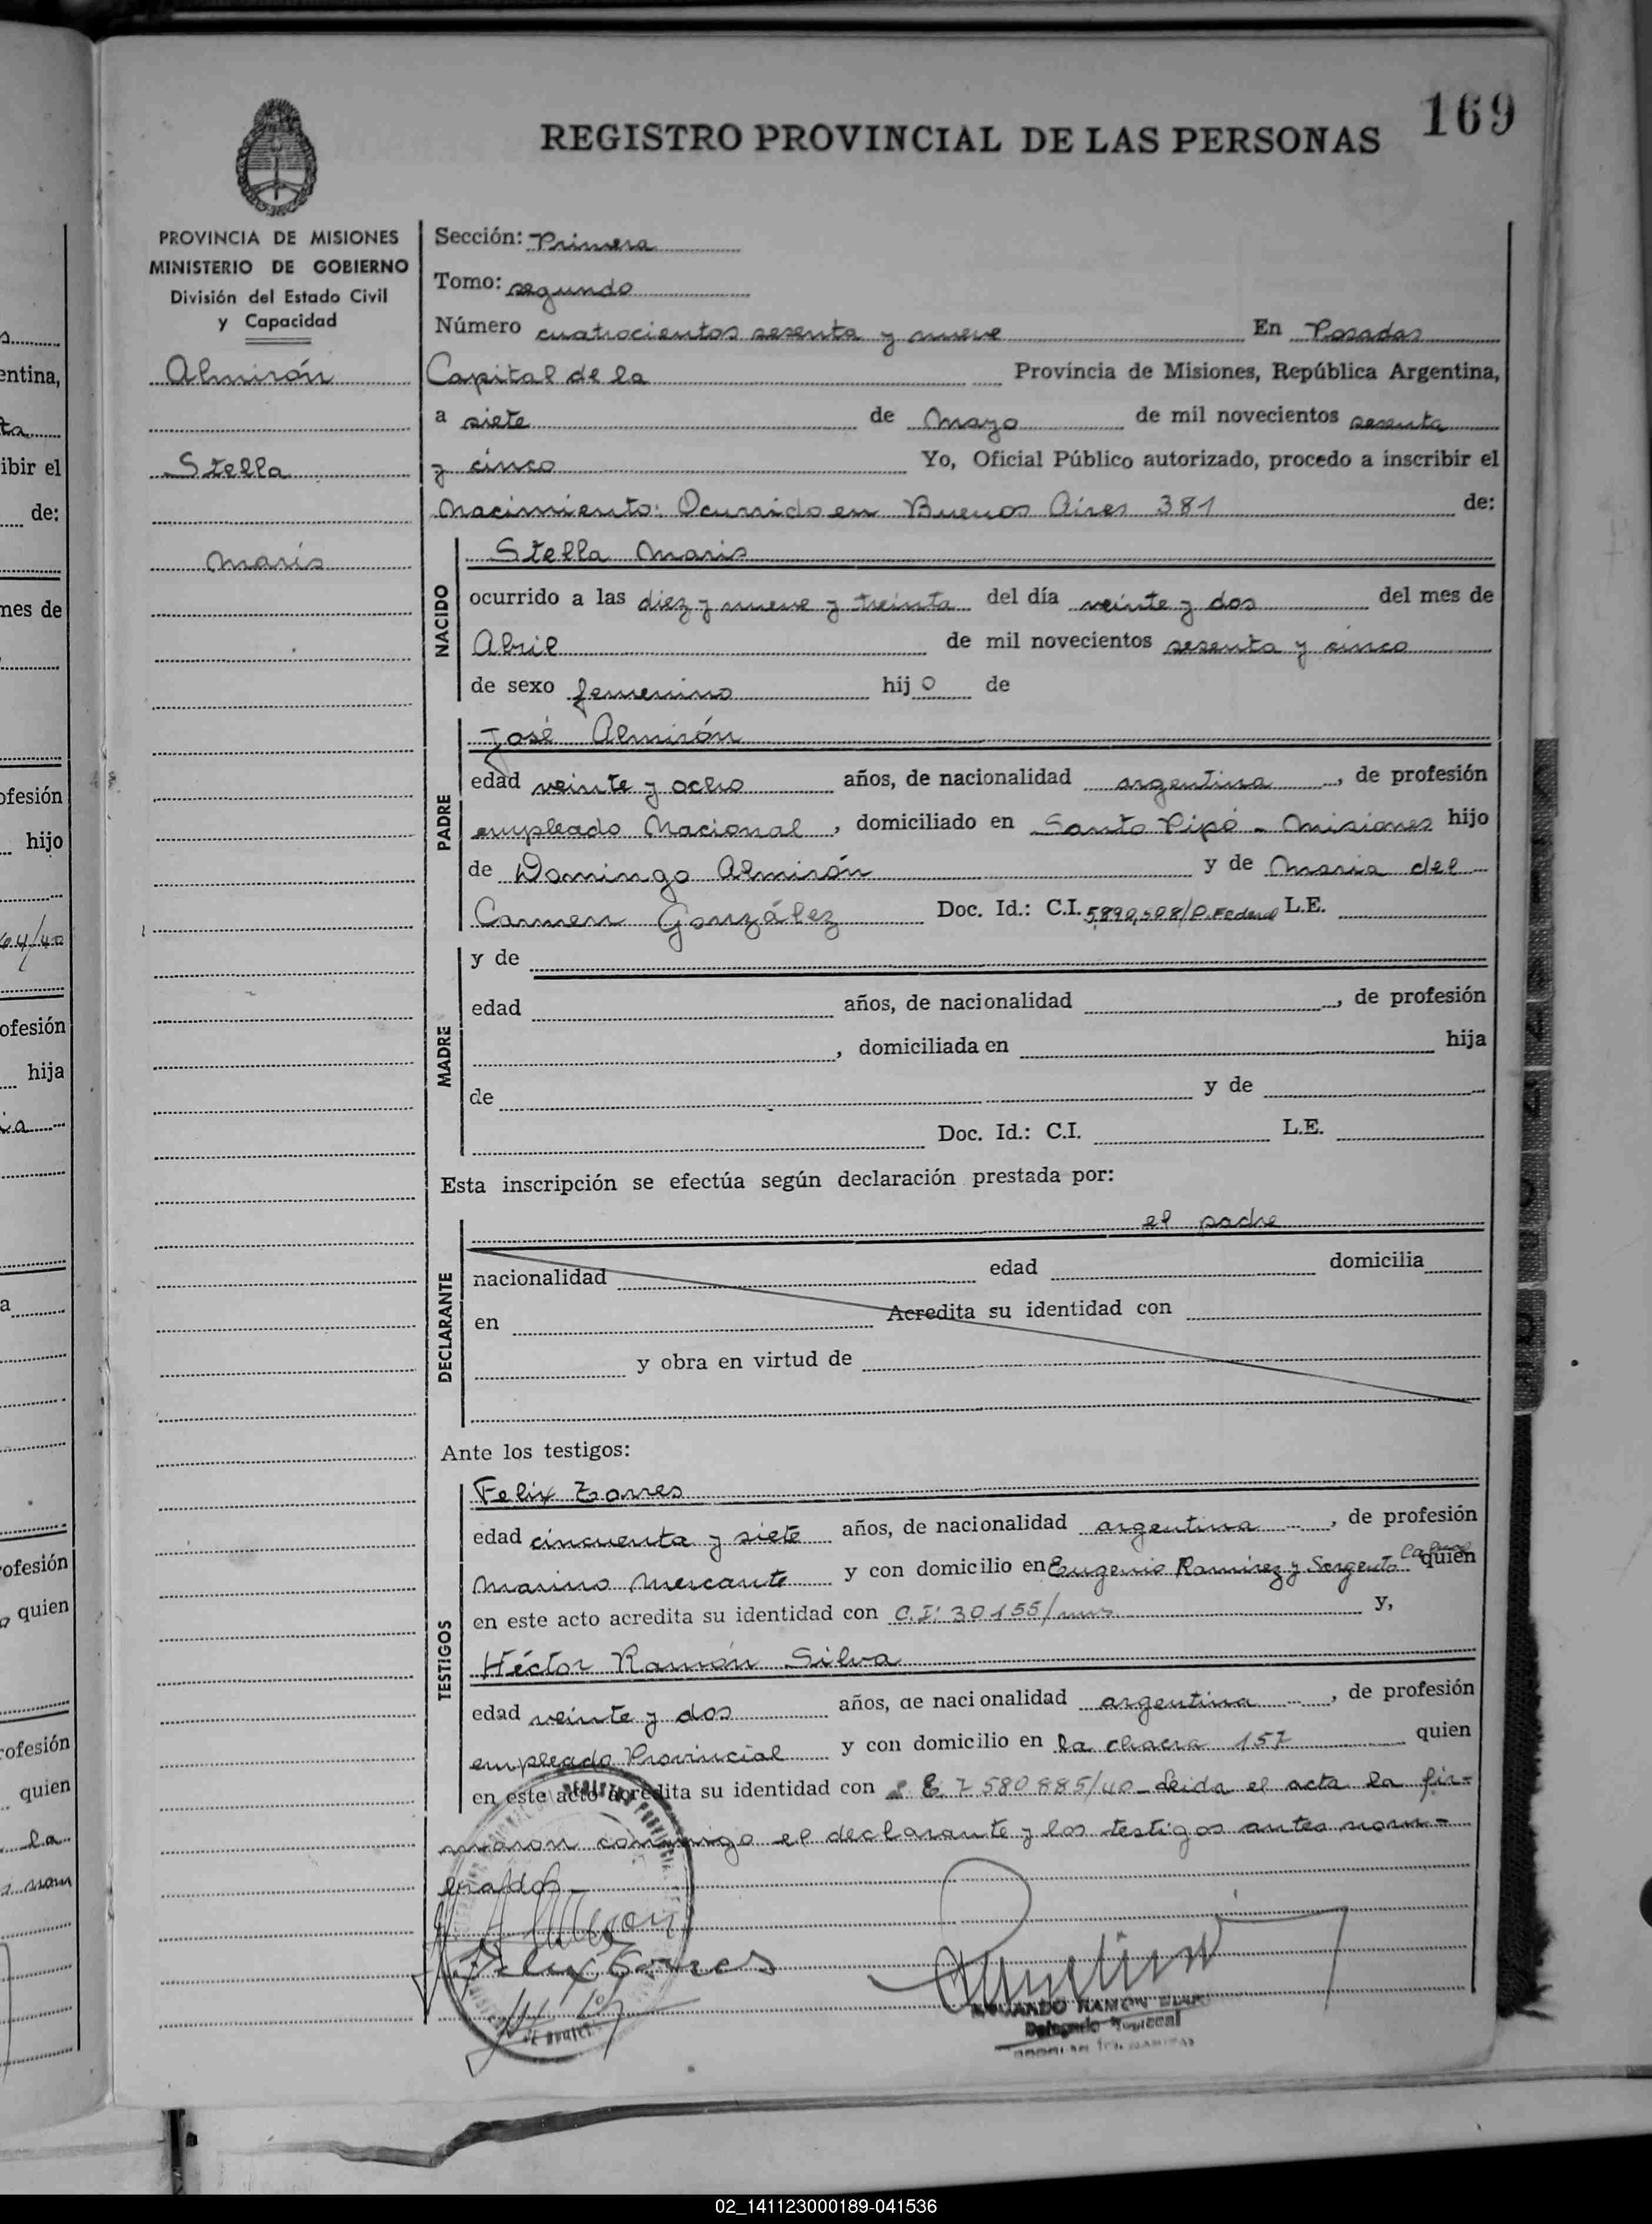 169
REGISTRO PROVINCIAL DE LAS PERSONAS
PROVINCIA DE MISIONES
MINISTERIO DE GOBIERNO
División del Estado Civil
y Capacidad
Almirón
Stella
Maris
Sección: Primera
Tomo: segundo
Número cuatrocientos sesenta y nueve En Posadas
Capital de la Provincia de Misiones, República Argentina,
a siete de Mayo de mil novecientos sesenta
y cinco Yo, Oficial Público autorizado, procedo a inscribir el
Nacimiento: Ocurrido en Buenos Aires 381 de:
NACIDO
Stella Maris
ocurrido a las diez y nueve y treinta del día veinte y dos del mes de
Abril de mil novecientos sesenta y cinco
de sexo femenino hijo de
PADRE
José Almirón
edad veinte y ocho años, de nacionalidad argentina, de profesión
empleado Nacional, domiciliado en Santo Pipó - Misiones hijo
de Domingo Almirón y de Maria del
Carmen González Doc. Id.: C.I. 5.890.508/P.Federal L.E.
MADRE
y de
edad años, de nacionalidad , de profesión
, domiciliada en hija
de y de
Doc. Id.: C.I. L.E.
Esta inscripción se efectúa según declaración prestada por:
el padre
DECLARANTE
nacionalidad edad domicilia
en Acredita su identidad con
y obra en virtud de
Ante los testigos:
TESTIGOS
Felix Torres
edad cincuenta y siete años, de nacionalidad argentina, de profesión
Marino Mercante y con domicilio en Eugenio Ramirez y Sargento Cabral quien
en este acto acredita su identidad con C.I: 30155/mns y,
Héctor Ramón Silva
edad veinte y dos años, de nacionalidad argentina, de profesión
empleado Provincial y con domicilio en la chacra 157 quien
en este acto acredita su identidad con L E. 7580885/40 - Leida el acta la fir-
maron conmigo el declarante y los testigos antes nom-
brados -
Almiron
Felix Torres
Delegado
02_141123000189-041536
entina,
ta
ibir el
de:
mes de
ofesión
hijo
ofesión
hija
ofesión
quien
ofesión
quien
la
nom